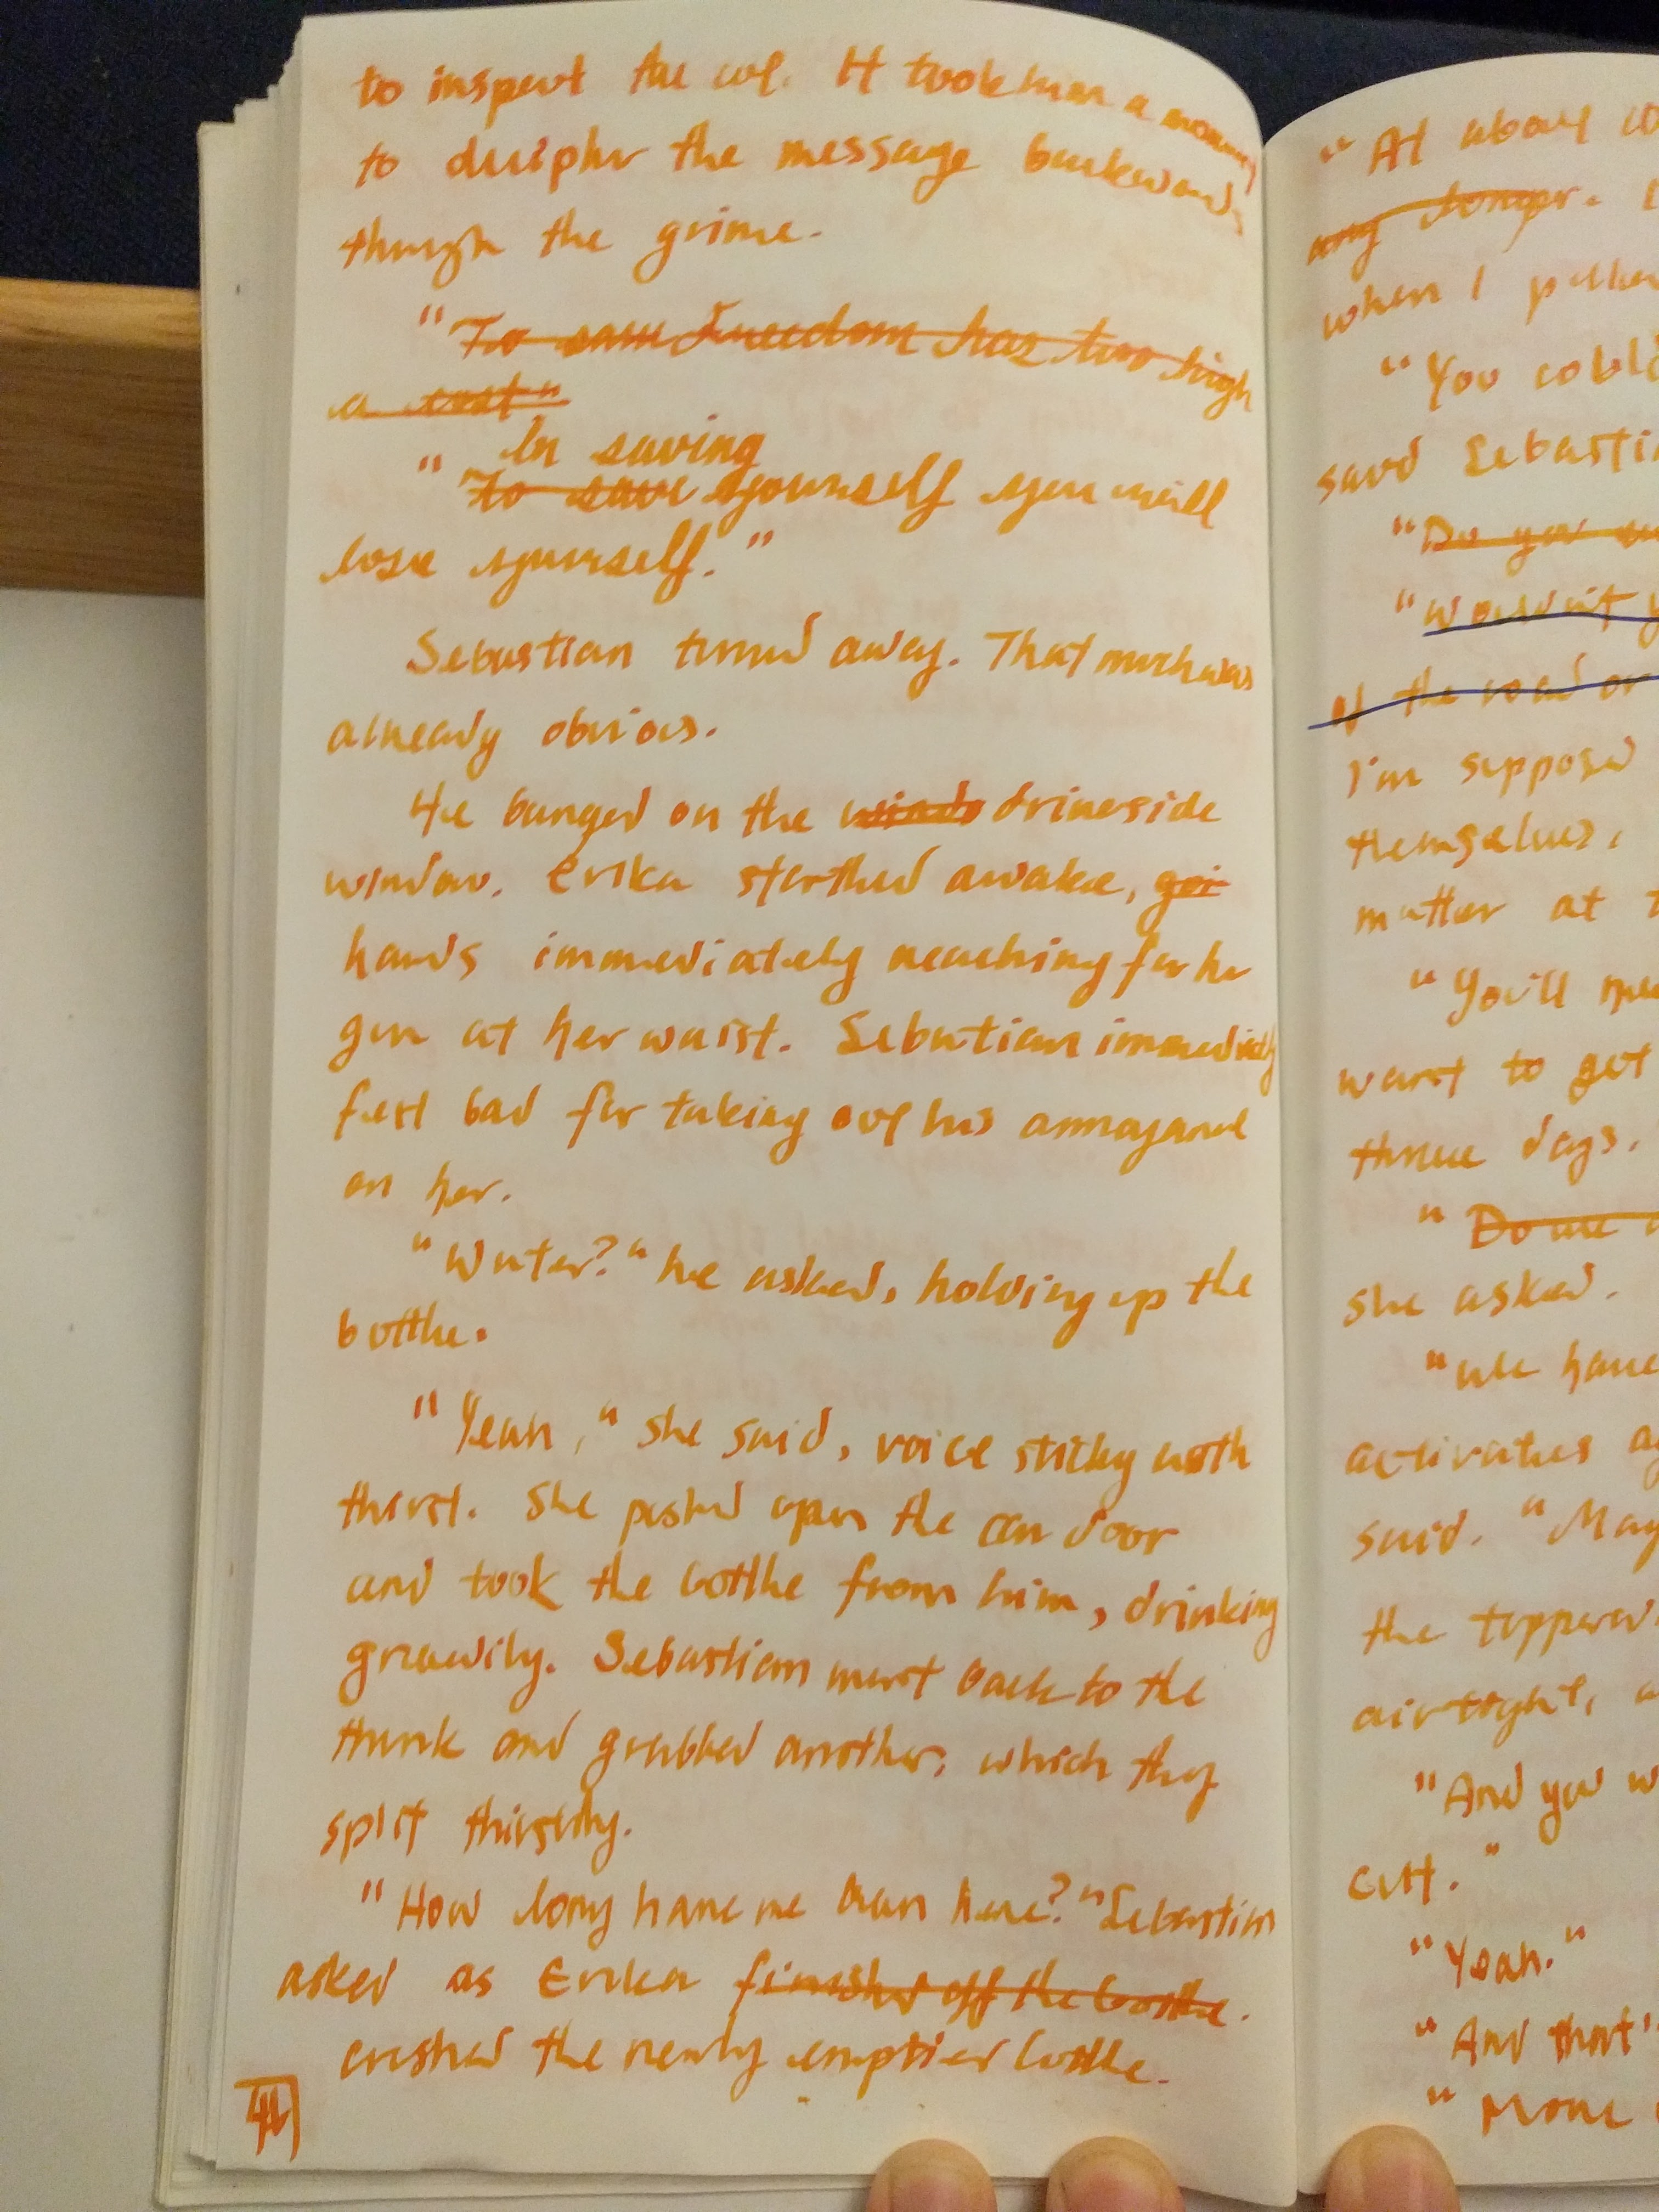 to inspect the
It took him a moment
to decipher the message backwards
through the grime.
"To save Freedom has too high
a cost"
In saving
"To save yourself you will
lose yourself."
Sebastian turned away. That much was
already obvious.
He banged on the windo driverside
window. Erika startled awake, goi
hands immediately reaching for her
gun at her waist. Sebastian immediately
felt bad for taking out his annoyance
on her.
"Water?" he asked, holding up the
bottle.
"Yeah," she said, voice sticky with
thirst. She pushed open the car door
and took the bottle from him, drinking
greedily. Sebastian went back to the
trunk and grabbed another, which they
split thirstily.
"How long have we been here?" Sebastian
asked as Erika finished off the bottle.
crushed the newly emptied bottle.
"At about
any longer.
when I
"You could
said
"Do you
"Wouldn't
of the road or
I'm supposed
themselves,
matter at
"You'll
want to get
three days.
she asked.
"We have
activates
said. "May
the
airtight,
"And you
"Yeah."
"And that'
"More